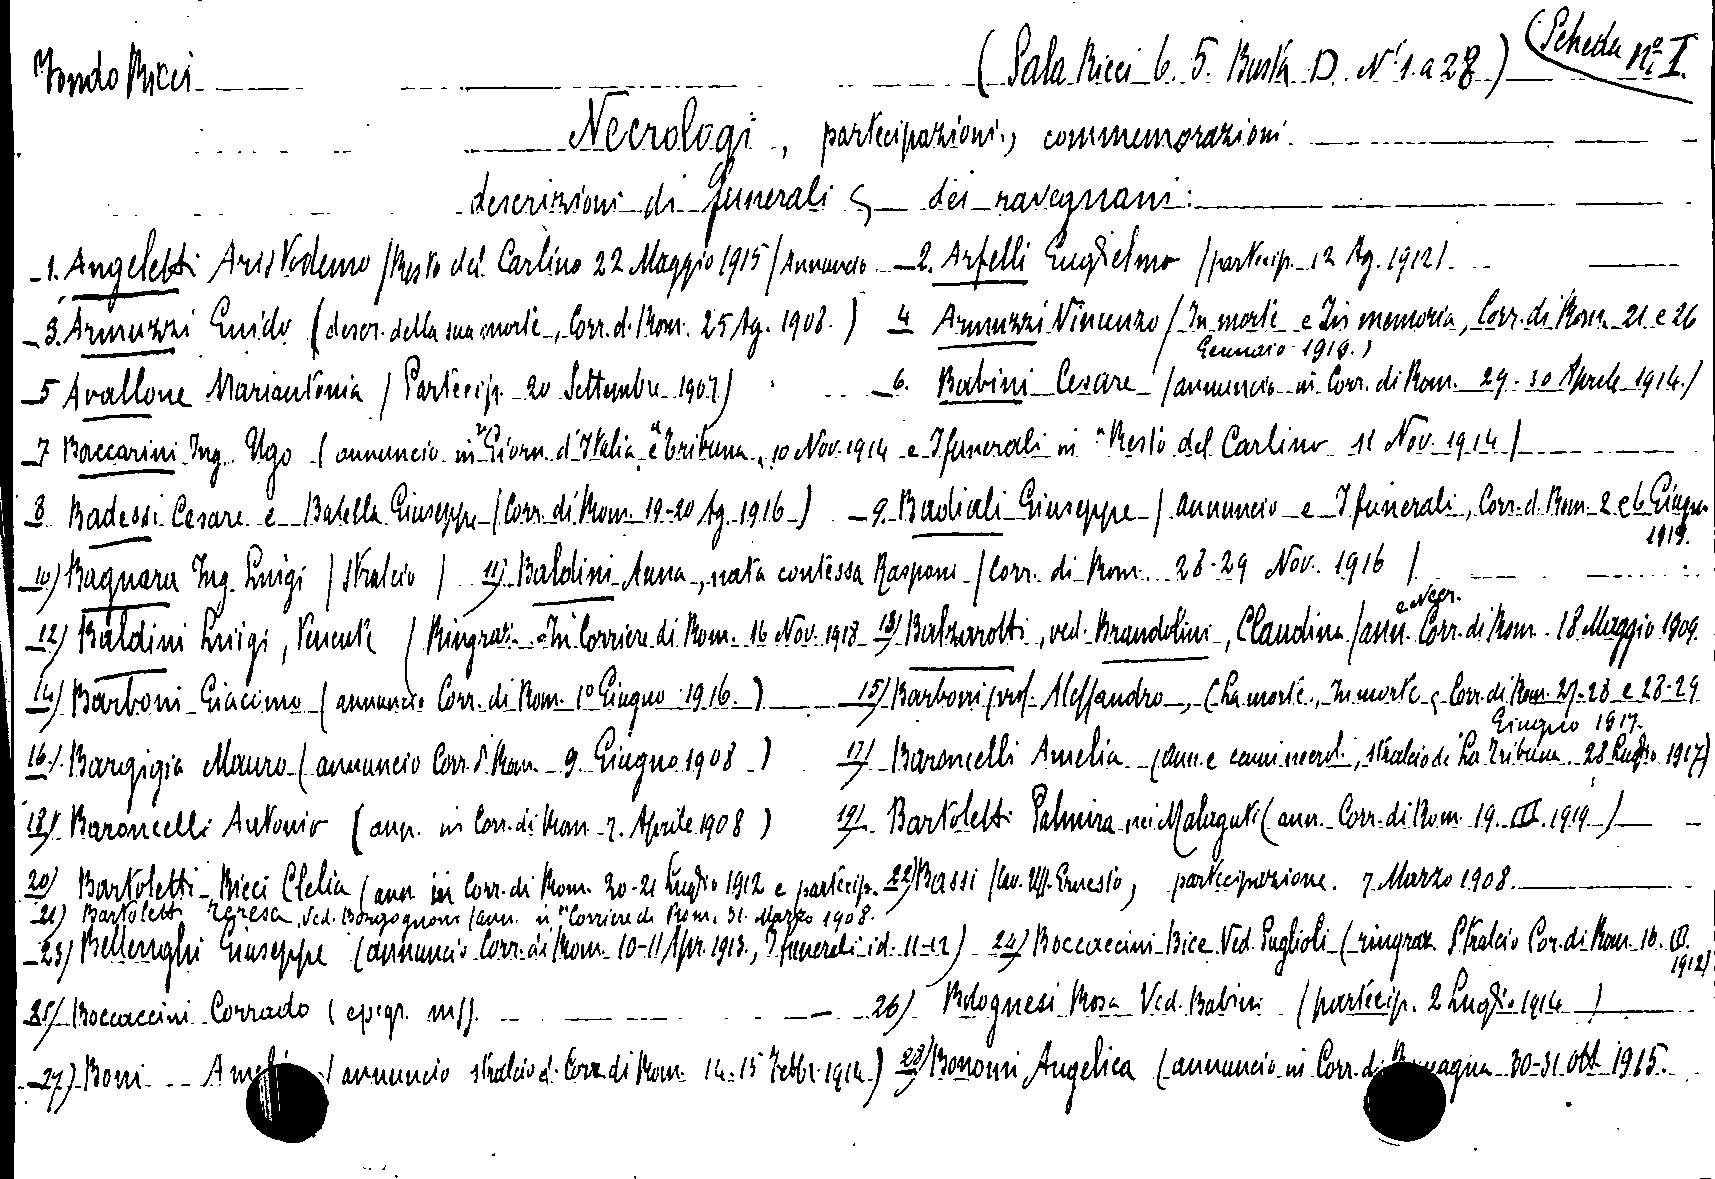 Fondo Ricci (Sala Ricci b. 5. Busta D. Nⁱ 1. a 28) (Scheda nº I.
Necrologi, partecipazioni, commemorazioni
descrizioni di funerali ç dei ravegnani:
1. Angeletti Aristodemo (Resto del Carlino 22 Maggio 1915 / Annuncio 2. Arfelli Guglielmo (partecip. 12 Ag. 1912).
3. Armuzzi Guido (descr. della sua morte, Corr. d. Rom. 25 Ag. 1908.) 4 Armuzzi Vincenzo / In morte e In memoria, Corr. di Rom. 21 e 26
Gennaio 1919.)
5 Avallone Mariantonia / Partecip. 20 Settembre 1907) 6. Babini Cesare (annuncio in Corr. di Rom. 29-30 Aprile 1914.)
7 Baccarini Ing. Ugo (annuncio in "Giorn. d'Italia" e "Tribuna, 10 Nov. 1914 e I funerali in "Resto del Carlino 11 Nov. 1914)
8 Badessi Cesare e Batella Giuseppe (Corr. di Rom. 19-20 Ag. 1916) 9. Badiali Giuseppe / annuncio e I funerali, Corr. d. Rom. 2 e 6 Giugno
1919.
10) Bagnara Ing. Luigi (stralcio) 11) Baldini Anna, nata contessa Rasponi (Corr. di Rom. 28-29 Nov. 1916)
e necr.
12) Baldini Luigi, Tenente (Ringraz. In Corriere di Rom. 16 Nov. 1918 13) Balzarotti, ved. Brandolini, Claudina (ann. Corr. di Rom. 18 Maggio 1909.
14) Barboni Giacomo (annuncio Corr. di Rom. 1º Giugno 1916.) 15) Barboni prof. Alessandro, (La morte, In morte, Corr. di Rom. 27-28 e 28-29
Giugno 1917.
16) Bargigia Mauro (annuncio Corr. d. Rom. 9 Giugno 1908) 17) Baroncelli Amelia (ann. e cenni necrol., stralcio di La Tribuna. 28 Luglio 1917)
18) Baroncelli Antonio (ann. in Corr. di Rom. 7. Aprile 1908) 19) Bartoletti Palmira, nei Malaguti (ann. Corr. di Rom. 19. III. 1919)
20) Bartoletti-Ricci Clelia (ann in Corr. di Rom. 20-21 Luglio 1912 e partecip. 22) Bassi Cav. Uff. Ernesto, partecipazione. 7 Marzo 1908.
21) Bartoletti Teresa, Ved. Borgognoni (ann. in "Corriere di Rom. 31. Marzo 1908.
23) Bellenghi Giuseppe (annuncio Corr. di Rom. 10-11 Apr. 1913., I funerali id. 11-12) 24) Boccaccini Bice Ved. Puglioli (ringraz. Stralcio Cor. di Rom. 16.
1912)
25) Boccaccini Corrado (epigr. ms). 26) Bolognesi Rosa Ved. Babini (partecip. 2 Luglio 1914)
27) Boni (annuncio stralcio d. Corr. di Rom. 14-15 Febbr. 1914) 28) Bonomi Angelica (annuncio in Corr. di Romagna 30-31 Ott. 1915.